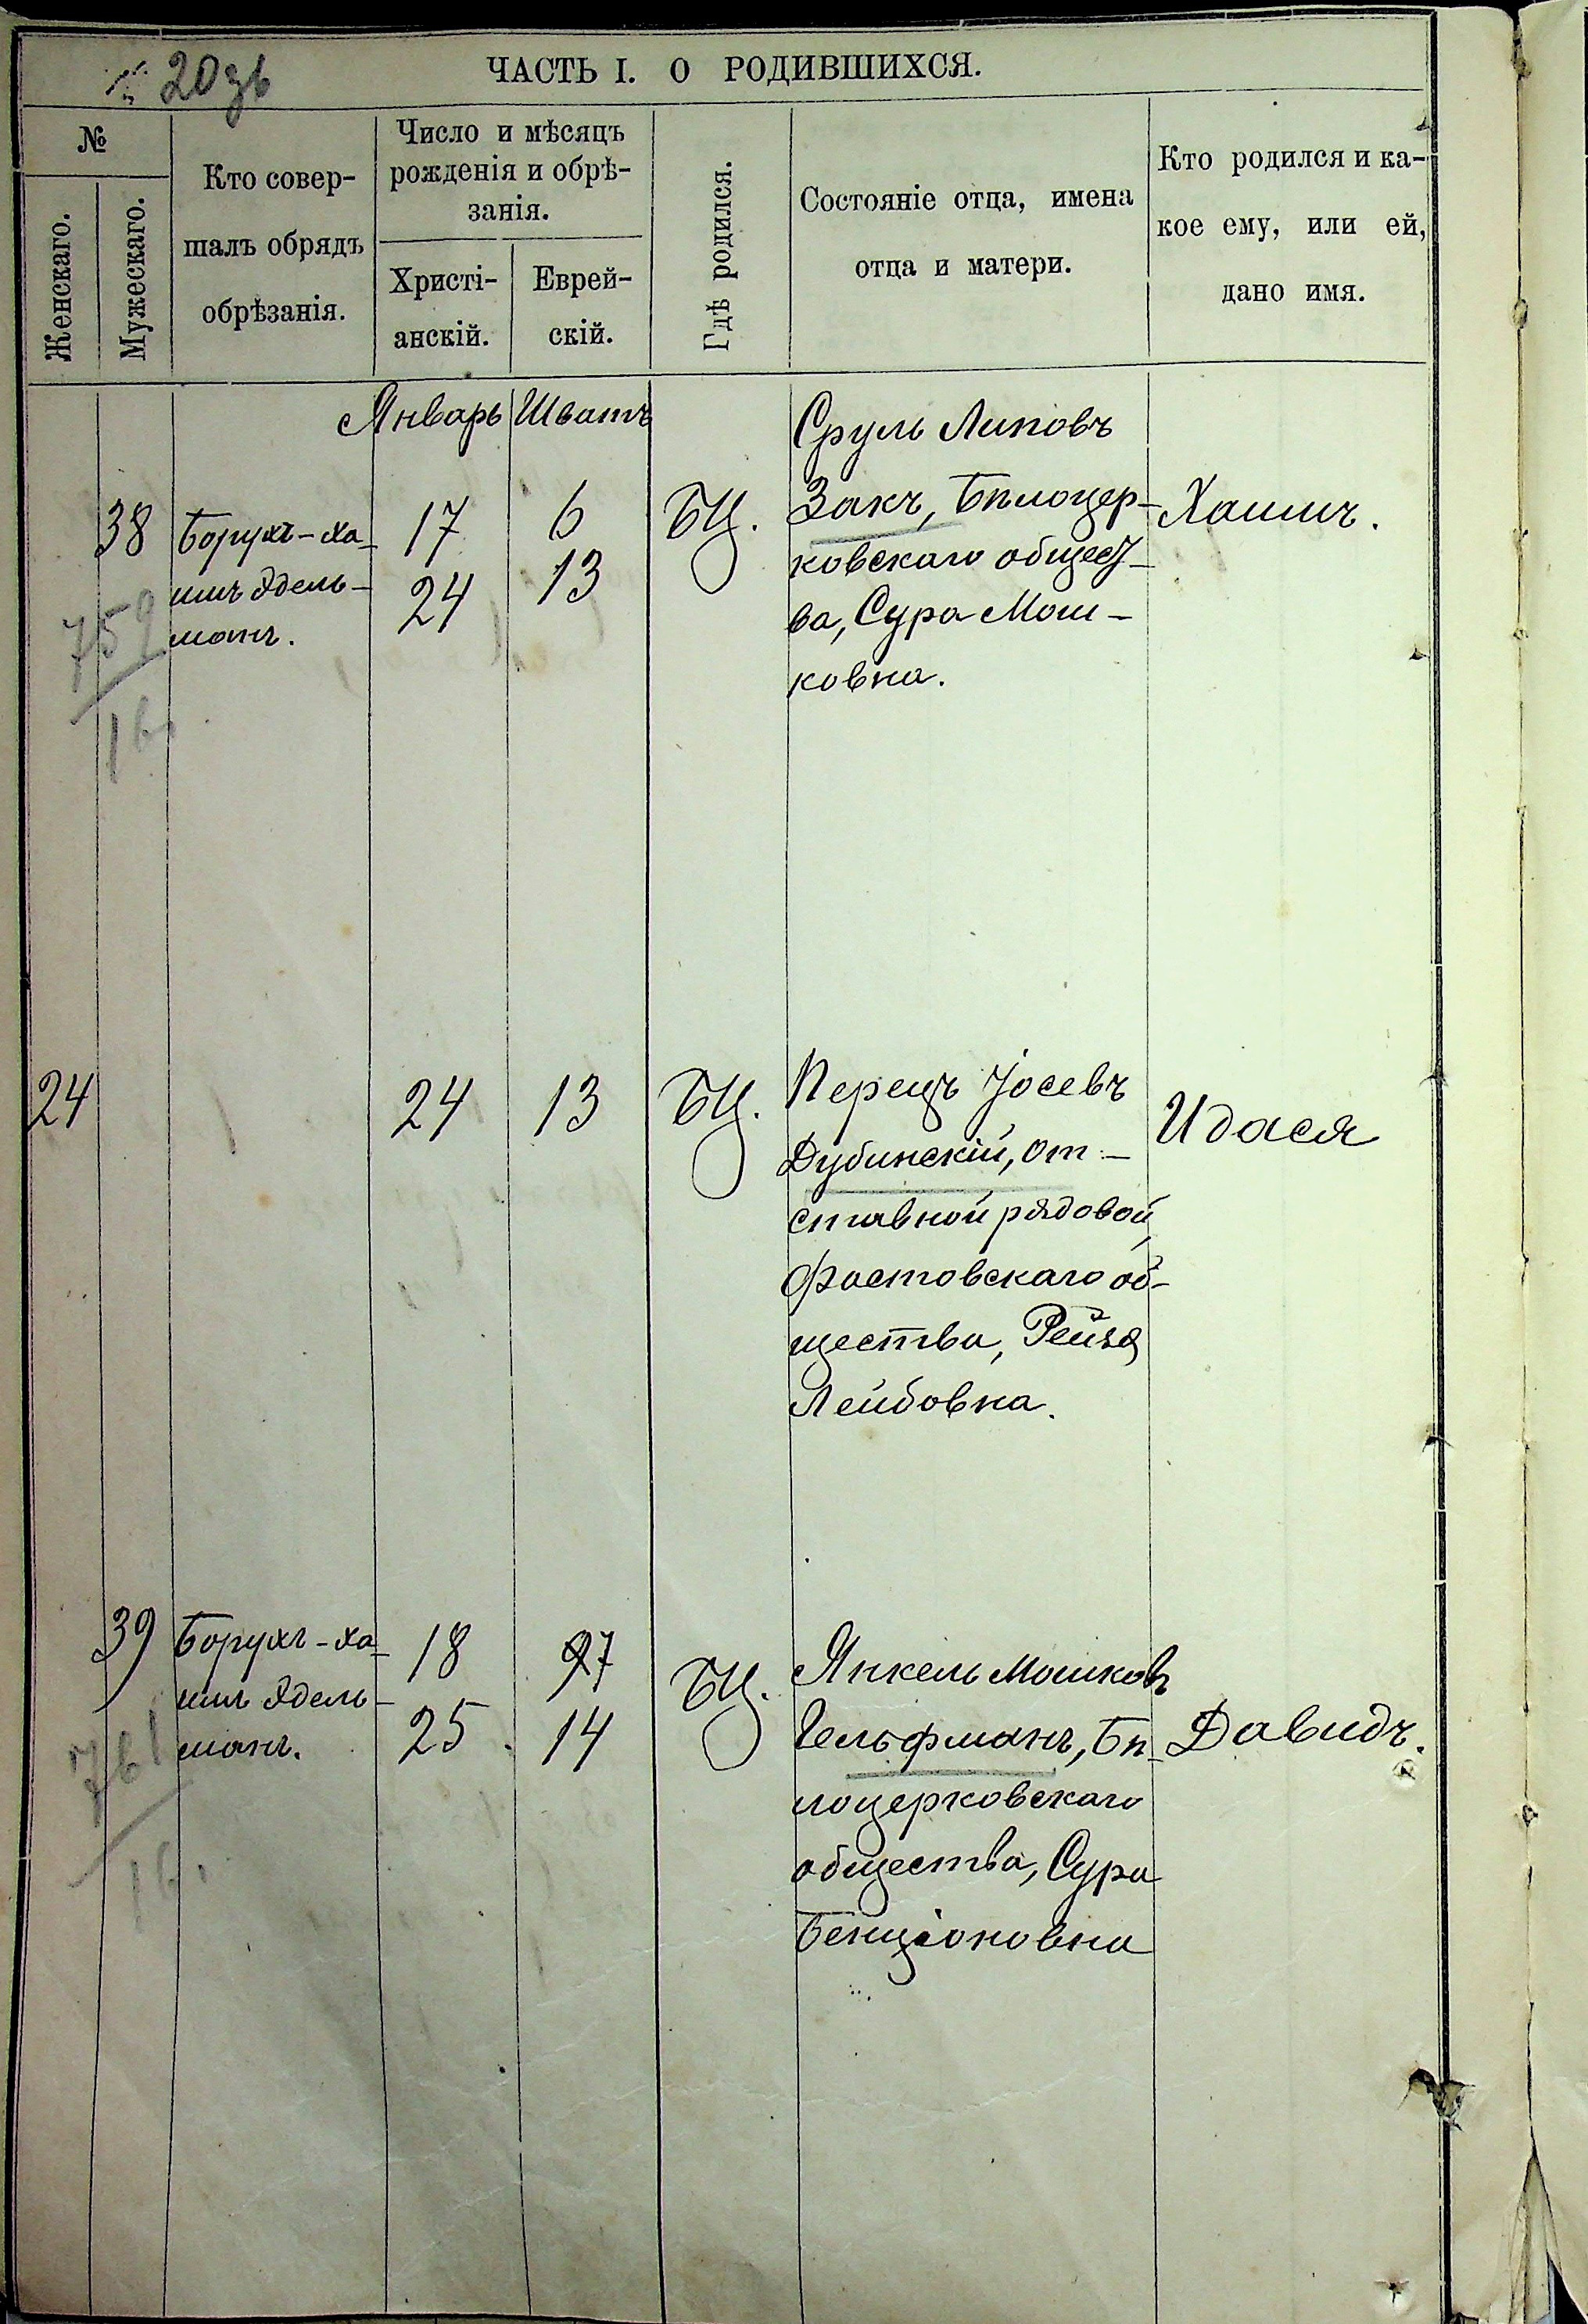 20 зв
ЧАСТЬ I. О РОДИВШИХСЯ.
№
Женскаго.
Мужескаго.
Кто совер-
шалъ обрядъ
обрѣзанія.
Число и мѣсяцъ
рожденія и обрѣ-
занія.
Христі-
анскій.
Еврей-
скій.
Гдѣ родился.
Состояніе отца, имена
отца и матери.
Кто родился и ка-
кое ему, или ей,
дано имя.
Январь Шватъ
38
Борухъ-Ха-
имъ Эдель-
манъ.
17
24
6
13
БЦ.
Сруль Липовъ
Закъ, Бѣлоцер-
ковскаго общест-
ва, Сура Мош-
ковна.
Хаимъ.
759
24
24
13
БЦ.
Перецъ Іосевъ
Дубинскій, от-
ставной рядовой,
Фастовскаго об-
щества, Рейзя
Лейбовна.
Идася
39
Борухъ-Ха-
имъ Эдель-
манъ.
18
25.
7
14
БЦ.
Янкель Мошковъ
Гельфманъ, Бѣ-
лоцерковскаго
общества, Сура
Бенціоновна
Давидъ.
761